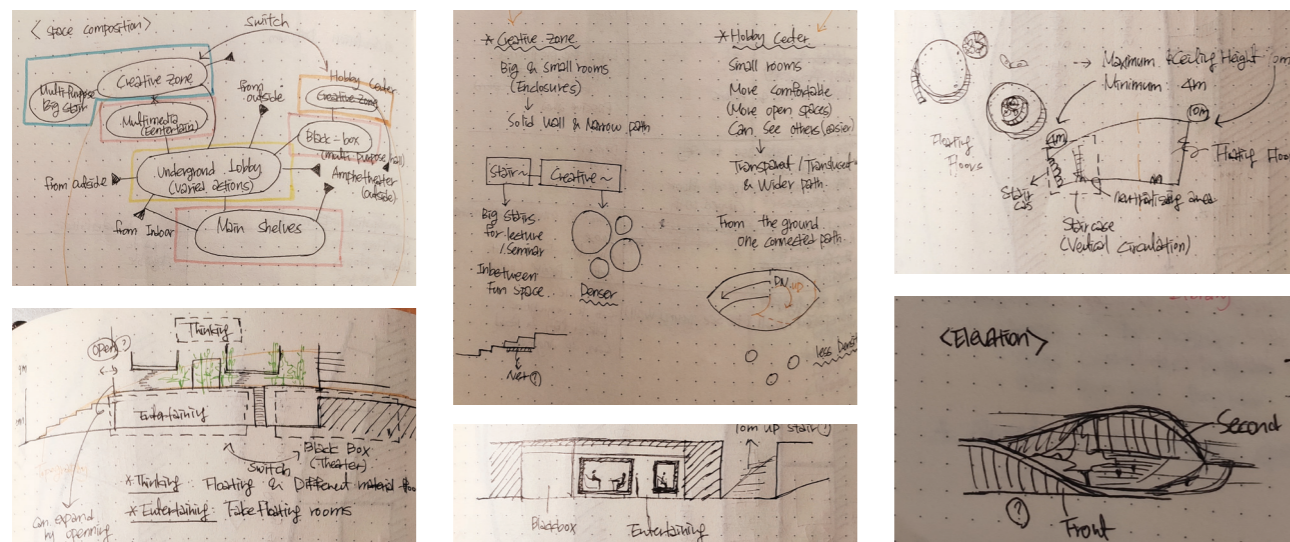 < Space composition >
Switch
Creative Zone
Multi-Purpose
Big Stair
Multimedia
(Eentertain)
from
outside
Hobby Center
Creative Zone
Black-box
(multi purpose hall)
Underground Lobby
(varied actions)
Amphetheater
(outside)
from outside
from Indoor
Main Shelves
Thinking
open?
Entertaining
Switch
Black Box
(Theater)
*Thinking : Floating & Different material floo
*Entertaining : Fake Floating rooms
Can expand
by openning
* Creative Zone
Big & Small rooms
(Enclosures)
Solid Wall & Narrow path
Stair~
Creative~
Big Stairs
for lecture
/Seminar
Inbetween
Fun Space
Denser
Net(?)
* Hobby Center
Small rooms
Move comfortable
(More open spaces)
Can See others (easier)
& Wider path.
From the ground
one connected path.
DN
UP
less Dense
up stair(?)
Blackbox
Entertaining
→ Maximum : Ceiling Height
Minimum : 4m
10m
4m
Floating
Floors
Floating Floo
Stair
Staircase
(Vertical Circulation)
<Elevation>
Second
?
Front